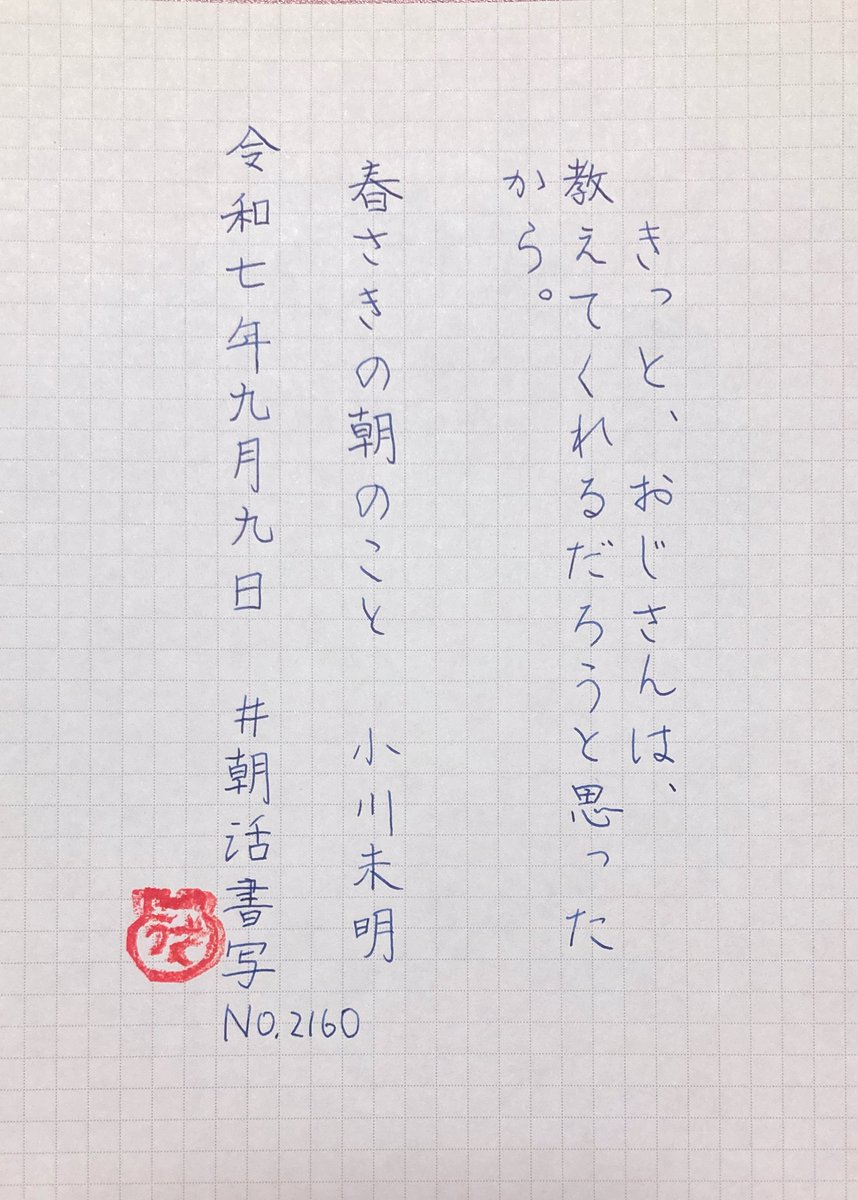 きっと、おじさんは、
教えてくれるだろうと思った
から。
春さきの朝のこと 小川未明
令和七年九月九日 #朝活書写
NO.2160